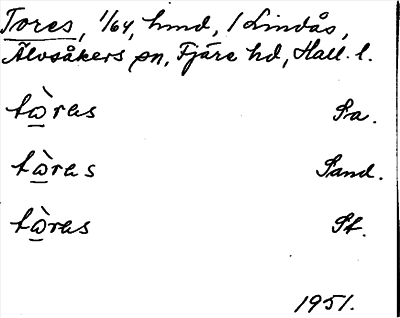 Tores, 1/64, hmd, 1 Lindås,
Älvsåkers sn, Fjäre hd, Hall. l.
tὼ̲ras Pa.
tὼ̲ras Sand.
tὼ̲ras St.
1951.